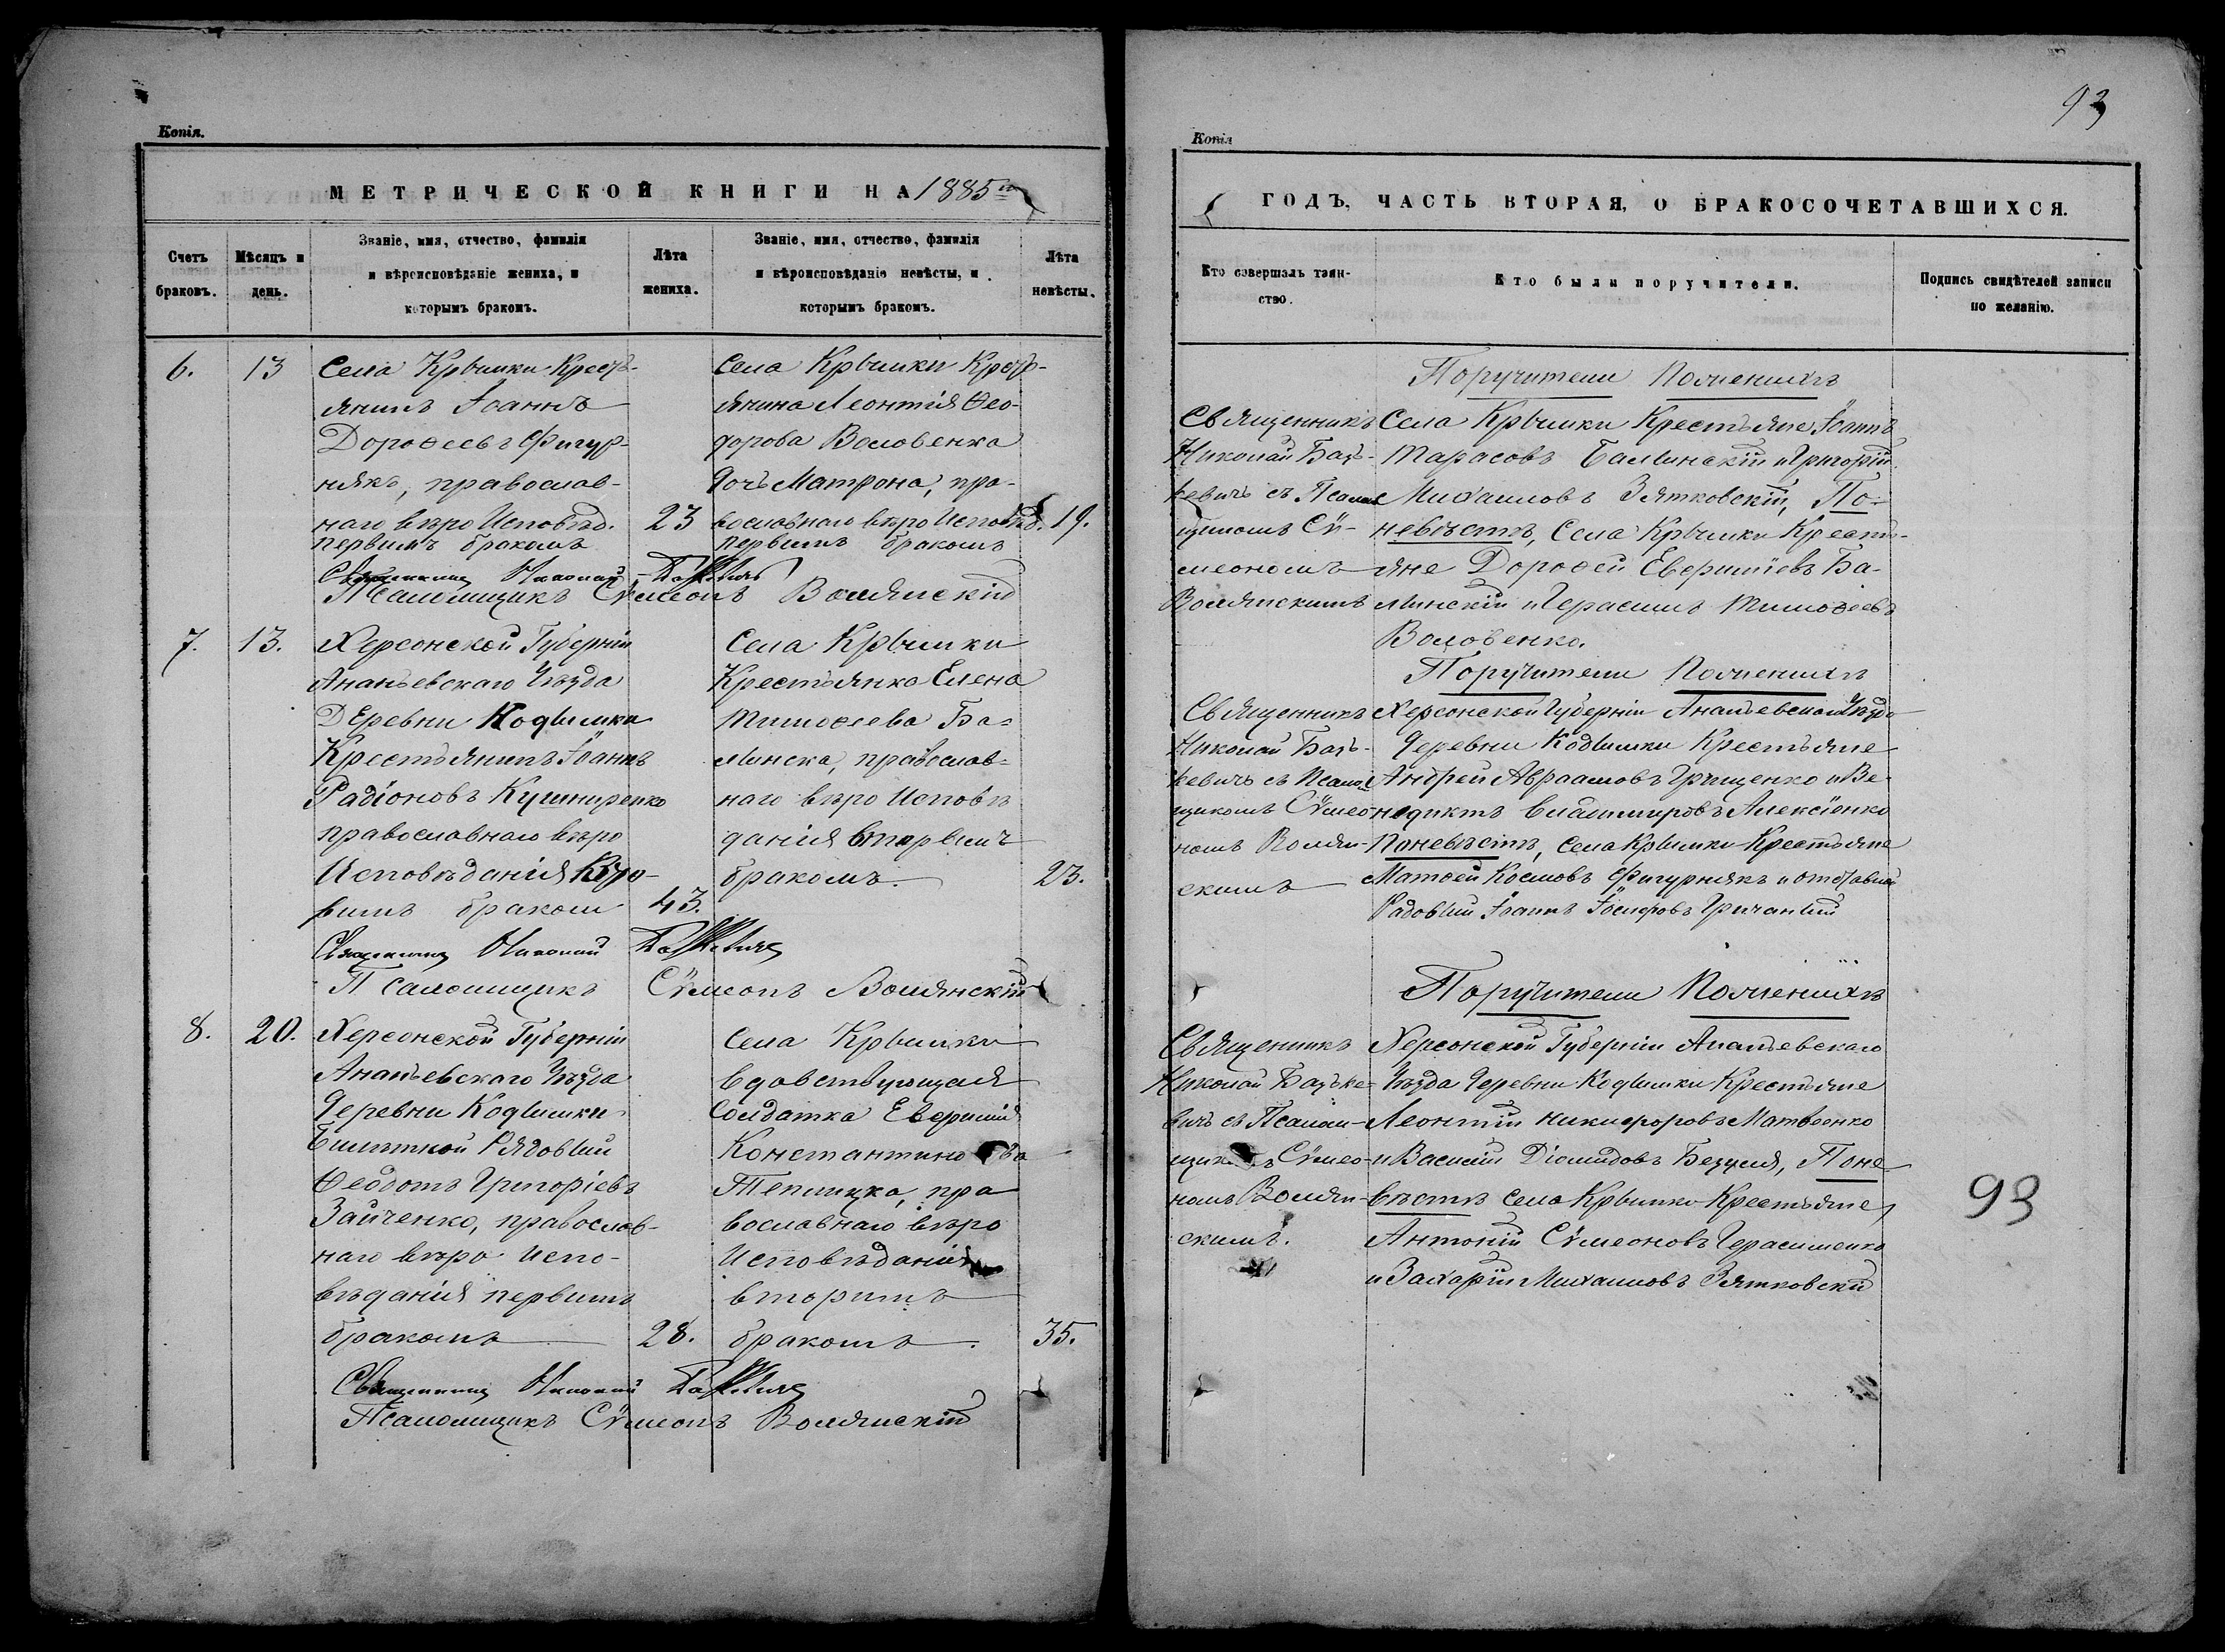 Копія.
МЕТРИЧЕСКОЙ КНИГИ НА 1885й
Счетъ браковъ.
Мѣсяцъ и день.
Званіе, имя, отчество, фамилія
и вѣроисповѣданіе жениха, и
которымъ бракомъ.
Лѣта
жениха.
Званіе, имя, отчество, фамилія
и вѣроисповѣданіе невѣсты, и
которымъ бракомъ.
Лѣта
невѣсты.
6.
13
Села Крымки Кресть-
янинъ Іоаннъ
Дороѳеевъ Фигур-
някъ, православ-
наго вѣро Исповѣд.
первымъ бракомъ
23
Села Крымки Кресть-
янина Леонтія Ѳео-
дорова Воловенка
дочь Матрона, пра-
вославнаго вѣро Исповѣд.
первымъ бракомъ
19.
Священникъ Николай Бацкевичъ
Псаломщикъ Сѵмеонъ Волянскій
7.
13.
Херсонской Губерніи
Ананьевскаго Уѣзда
Деревни Кодымки
Крестьянинъ Іоаннъ
Радіоновъ Кушниренко
православнаго вѣро
Исповѣданія Вто-
рымъ бракомъ
43.
Села Крымки
Крестьянка Елена
Тимоѳеева Ба-
линска, православ-
наго вѣро Исповѣ
данія первымъ
бракомъ.
23.
Священникъ Николай Бацкевичъ
Псаломщикъ Сѵмеонъ Волянскій
8.
20.
Херсонской Губерніи
Ананьевскаго Уѣзда
Деревни Кодымки
Билетной Рядовый
Ѳеодотъ Григоріевъ
Зайченко, православ-
наго вѣро Испо-
вѣданія первымъ
бракомъ
28.
Села Крымки
вдовствующая
Солдатка Евфимія
Константинова
Теплицка, пра
вославнаго вѣро
Исповѣданія
вторымъ
бракомъ.
35.
Священникъ Николай Бацкевичъ
Псаломщикъ Сѵмеонъ Волянскій
93
Копія
ГОДЪ, ЧАСТЬ ВТОРАЯ, О БРАКОСОЧЕТАВШИХСЯ.
Кто совершалъ таин-
ство.
Кто были поручители.
Подпись свидѣтелей записи
по желанію.
Священникъ
Николай Баць-
кевичъ съ Псалом
щикомъ Сѵ-
меономъ
Волянскимъ
Поручители По женихѣ
Села Крымки Крестьяне Іоаннъ
Тарасовъ Балинскій и Григорій
Михаиловъ Зятковскій, По-
невѣстѣ, Села Крымки Кресть-
яне Дороѳей Евфиміевъ Ба-
линскій и Герасимъ Тимоѳеевъ
Воловенко.
Священникъ
Николай Баць-
кевичъ съ Псалом
щикомъ Сѵмео
номъ Волян-
скимъ
Поручители По женихѣ
Херсонской Губерніи Ананьевскаго Уѣзда
Деревни Кодымки Крестьяне
Андрей Авраамовъ Грищенко и Ве-
недиктъ Владимировъ Алексіенко
По невѣстѣ, Села Крымки Крестьяне
Матѳей Космовъ Фигурнякъ и отставной
Радовый Іоаннъ Іосифовъ Гричаный
Священникъ
Николай Бацъке-
вичъ съ Псалом-
щикомъ Сѵмео-
номъ Волян-
скимъ.
Поручители По женихѣ
Херсонской Губерніи Ананьевскаго
Уѣзда Деревни Кодымки Крестьяне
Леонтій Никифоровъ Матвѣенко
и Василій Діомидовъ Безуля, По не
вѣстѣ села Крымки Крестьяне,
Антоній Сѵмеоновъ Герасименко
и Захарій Михаиловъ Зятковскій
93